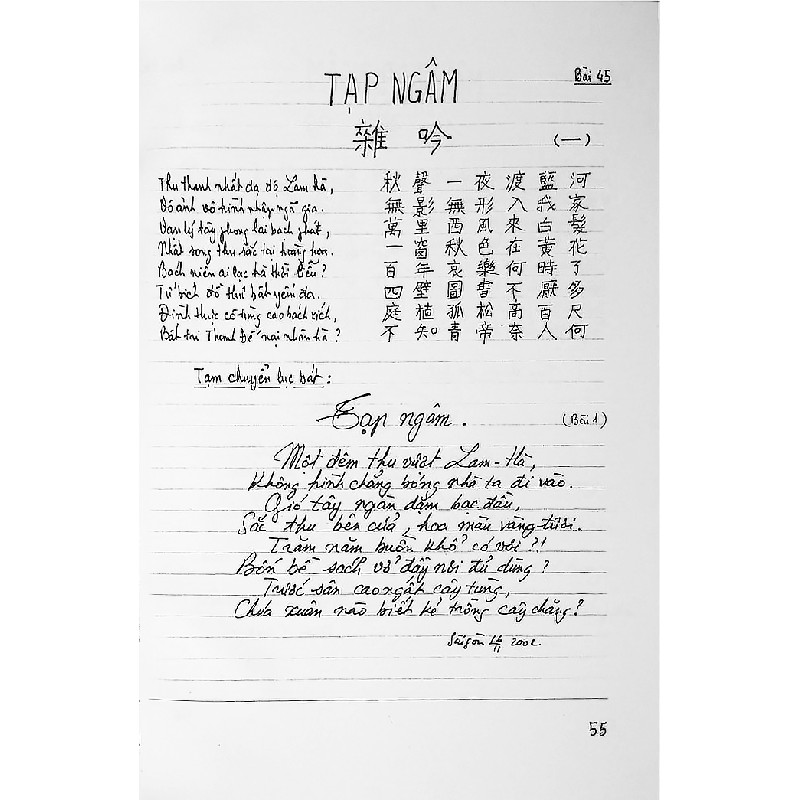 Bài 45
TẠP NGÂM
雜吟 (一)
Thu thanh nhất dạ độ Lam hà,
Vô ảnh vô hình nhập ngã gia.
Vạn lý tây phong lai bạch phát,
Nhất song thu sắc tại hoàng hoa.
Bách niên ai lạc hà thời liễu?
Tứ bích đồ thư bất yếm đa.
Đình thực cô tùng cao bách xích,
Bất tri Thanh đế nại nhân hà?
秋聲一夜渡藍河
無影無形入我家
萬里西風來白髮
一窗秋色在黃花
百年哀樂何時了
四壁圖書不厭多
庭植孤松高百尺
不知青帝奈人何
Tạm chuyển lục bát:
Tạp ngâm. (Bài 1)
Một đêm thu vượt Lam-Hà,
Không hình chẳng bóng nhà ta đi vào.
Gió tây ngàn dặm bạc đầu,
Sắc thu bên cửa, hoa màu vàng tươi.
Trăm năm buồn khổ có vơi?!
Bốn bề sách vở đầy nơi đủ dùng?
Trước sân cao ngất cây tùng,
Chúa xuân nào biết kẻ trồng cây chăng?
Sàigòn 2002.
55